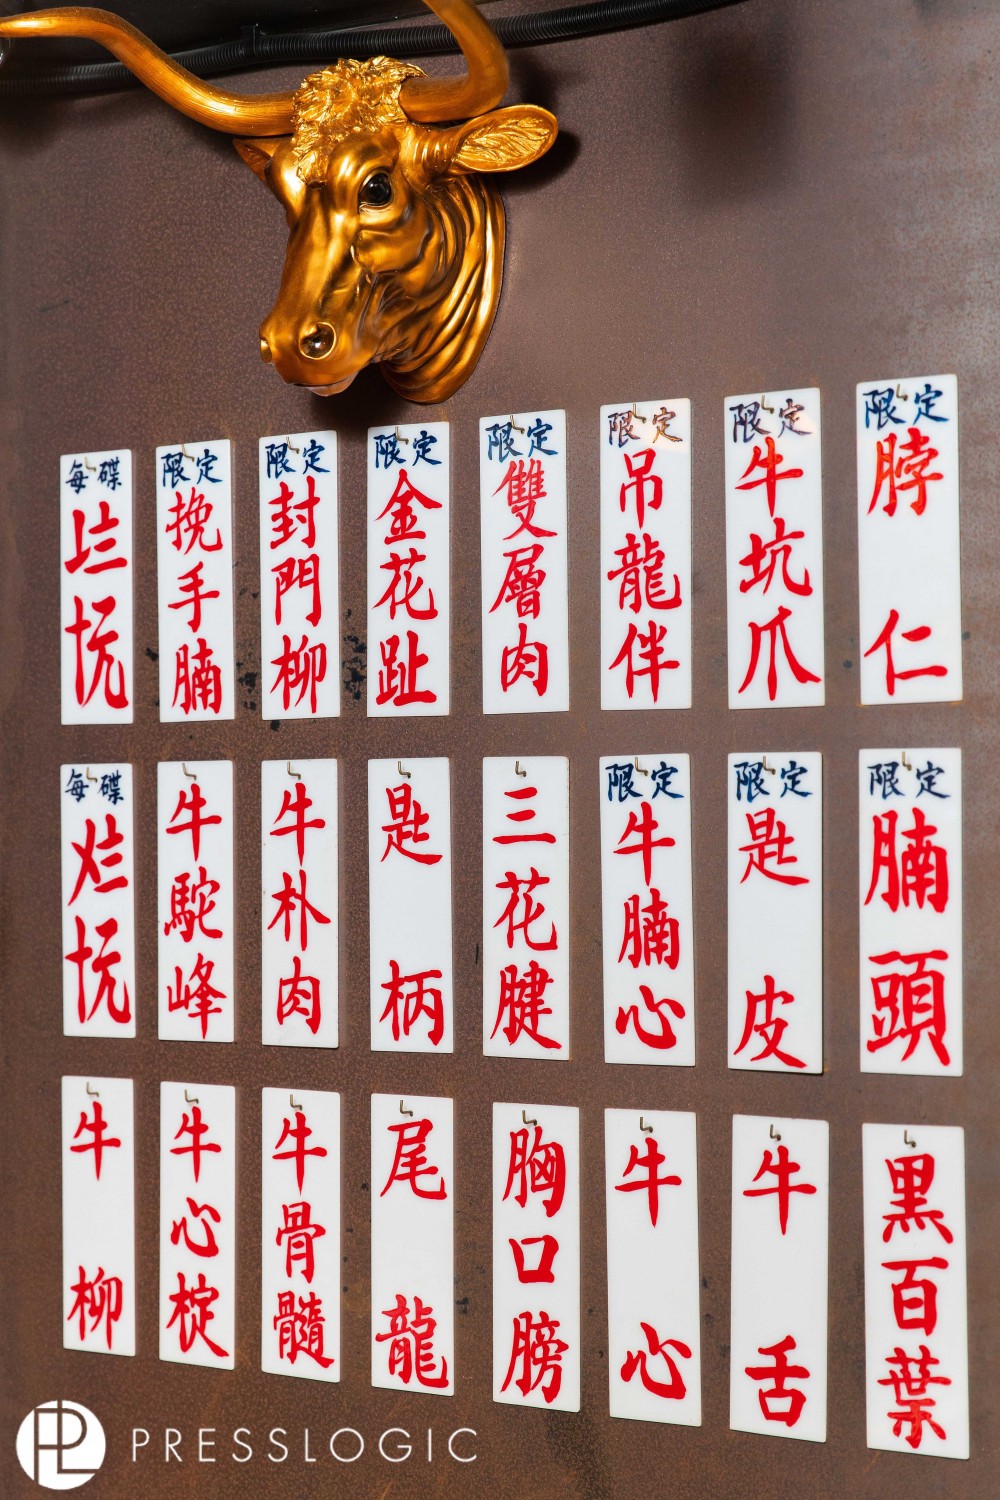 限定
脖仁
限定
牛坑爪
限定
吊龍伴
限定
雙層肉
限定
金花趾
限定
封門柳
限定
挽手腩
每碟
限定
腩頭
限定
匙皮
限定
牛腩心
三花腱
匙柄
牛朴肉
牛駝峰
每碟
黑百葉
牛舌
牛心
胸口膀
尾龍
牛骨髓
牛心椗
牛柳
PRESSLOGIC